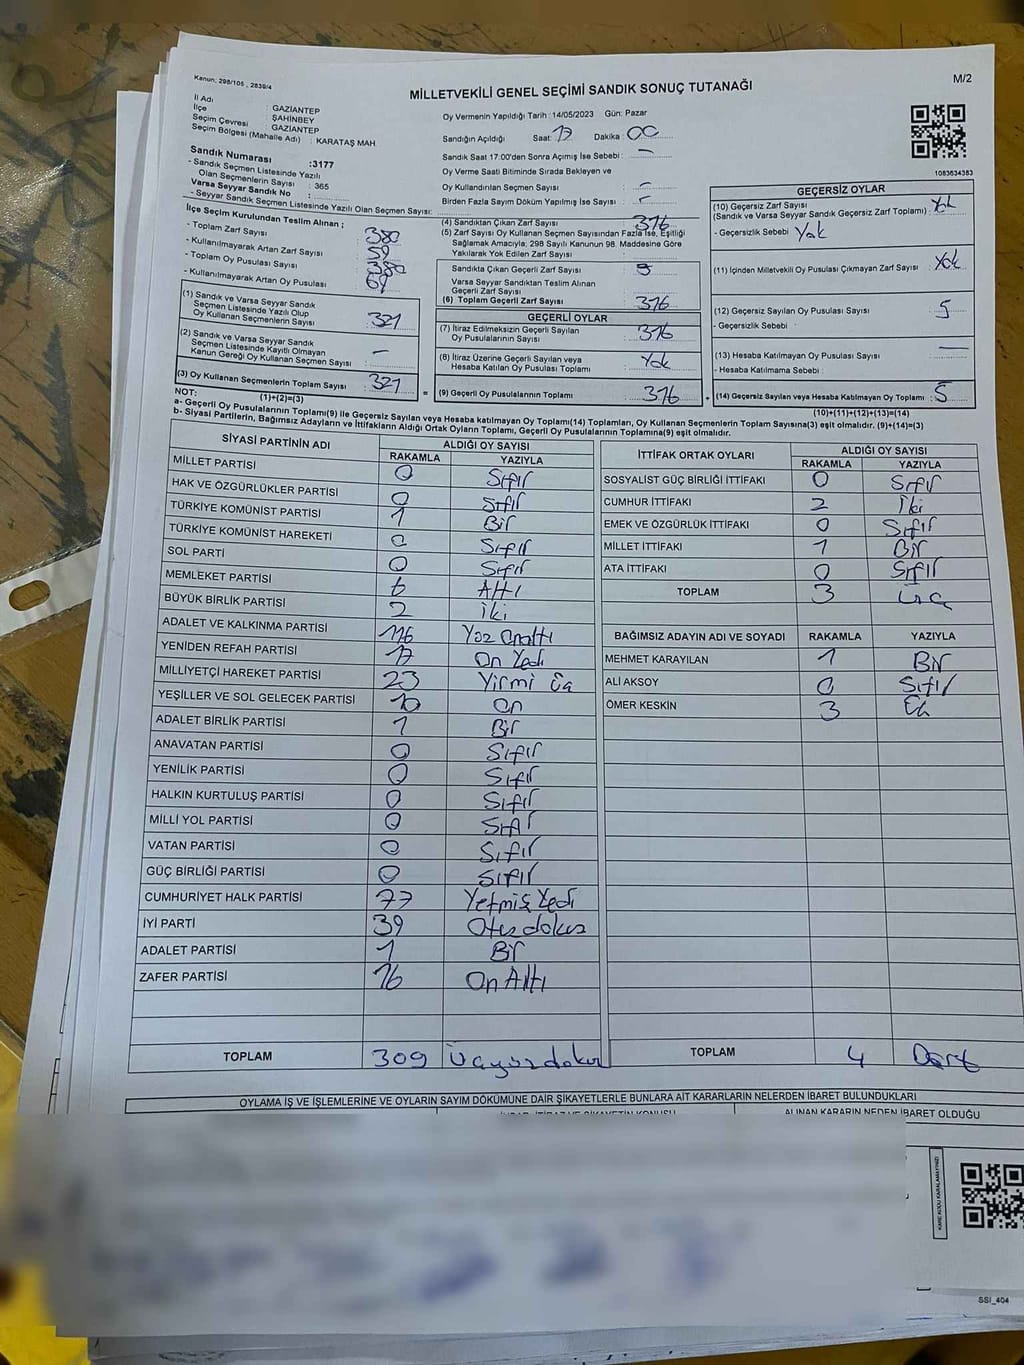 Kanun; 298/105 , 2839/4
MİLLETVEKİLİ GENEL SEÇİMİ SANDIK SONUÇ TUTANAĞI
M/2
İl Adı : GAZİANTEP
İlçe : ŞAHİNBEY
Seçim Çevresi : GAZİANTEP
Seçim Bölgesi (Mahalle Adı) : KARATAŞ MAH
Sandık Numarası :3177
- Sandık Seçmen Listesinde Yazılı
Olan Seçmenlerin Sayısı : 365
Varsa Seyyar Sandık No :
- Seyyar Sandık Seçmen Listesinde Yazılı Olan Seçmen Sayısı:
İlçe Seçim Kurulundan Teslim Alınan ;
- Toplam Zarf Sayısı : 380
- Kullanılmayarak Artan Zarf Sayısı : 59
- Toplam Oy Pusulası Sayısı : 380
- Kullanılmayarak Artan Oy Pusulası :
(1) Sandık ve Varsa Seyyar Sandık
Seçmen Listesinde Yazılı Olup
Oy Kullanan Seçmenlerin Sayısı : 321
(2) Sandık ve Varsa Seyyar Sandık
Seçmen Listesinde Kayıtlı Olmayan
Kanun Gereği Oy Kullanan Seçmen Sayısı : –
(3) Oy Kullanan Seçmenlerin Toplam Sayısı : 321
(1)+(2)=(3)
Oy Vermenin Yapıldığı Tarih : 14/05/2023 Gün: Pazar
Sandığın Açıldığı Saat: 17 Dakika : 00
Sandık Saat 17:00'den Sonra Açımış İse Sebebi : –
Oy Verme Saati Bitiminde Sırada Bekleyen ve
Oy Kullandırılan Seçmen Sayısı : –
Birden Fazla Sayım Döküm Yapılmış İse Sayısı : –
(4) Sandıktan Çıkan Zarf Sayısı : 316
(5) Zarf Sayısı Oy Kullanan Seçmen Sayısından Fazla İse, Eşitliği
Sağlamak Amacıyla; 298 Sayılı Kanunun 98. Maddesine Göre
Yakılarak Yok Edilen Zarf Sayısı :
Sandıkta Çıkan Geçerli Zarf Sayısı :
Varsa Seyyar Sandıktan Teslim Alınan
Geçerli Zarf Sayısı :
(6) Toplam Geçerli Zarf Sayısı : 316
GEÇERLİ OYLAR
(7) İtiraz Edilmeksizin Geçerli Sayılan
Oy Pusulalarının Sayısı : 316
(8) İtiraz Üzerine Geçerli Sayılan veya
Hesaba Katılan Oy Pusulası Toplamı : Yok
= (9) Geçerli Oy Pusulalarının Toplamı : 316
1083634383
GEÇERSİZ OYLAR
(10) Geçersiz Zarf Sayısı : Yok
(Sandık ve Varsa Seyyar Sandık Geçersiz Zarf Toplamı)
- Geçersizlik Sebebi : Yok
(11) İçinden Milletvekili Oy Pusulası Çıkmayan Zarf Sayısı : Yok
(12) Geçersiz Sayılan Oy Pusulası Sayısı : 5
- Geçersizlik Sebebi :
(13) Hesaba Katılmayan Oy Pusulası Sayısı : –
- Hesaba Katılmama Sebebi :
+ (14) Geçersiz Sayılan veya Hesaba Katılmayan Oy Toplamı : 5
(10)+(11)+(12)+(13)=(14)
NOT:
a- Geçerli Oy Pusulalarının Toplamı(9) ile Geçersiz Sayılan veya Hesaba katılmayan Oy Toplamı(14) Toplamları, Oy Kullanan Seçmenlerin Toplam Sayısına(3) eşit olmalıdır. (9)+(14)=(3)
b- Siyasi Partilerin, Bağımsız Adayların ve İttifakların Aldığı Ortak Oyların Toplamı, Geçerli Oy Pusulalarının Toplamına(9) eşit olmalıdır.
SİYASİ PARTİNİN ADI ALDIĞI OY SAYISI
RAKAMLA YAZIYLA
MİLLET PARTİSİ 0 Sıfır
HAK VE ÖZGÜRLÜKLER PARTİSİ 0 Sıfır
TÜRKİYE KOMÜNİST PARTİSİ 1 Bir
TÜRKİYE KOMÜNİST HAREKETİ 0 Sıfır
SOL PARTİ 0 Sıfır
MEMLEKET PARTİSİ 6 Altı
BÜYÜK BİRLİK PARTİSİ 2 iki
ADALET VE KALKINMA PARTİSİ 116 Yüz Onaltı
YENİDEN REFAH PARTİSİ 17 On Yedi
MİLLİYETÇİ HAREKET PARTİSİ 23 Yirmi Üç
YEŞİLLER VE SOL GELECEK PARTİSİ 10 On
ADALET BİRLİK PARTİSİ 1 Bir
ANAVATAN PARTİSİ 0 Sıfır
YENİLİK PARTİSİ 0 Sıfır
HALKIN KURTULUŞ PARTİSİ 0 Sıfır
MİLLİ YOL PARTİSİ 0 Sıfır
VATAN PARTİSİ 0 Sıfır
GÜÇ BİRLİĞİ PARTİSİ 0 Sıfır
CUMHURİYET HALK PARTİSİ 77 Yetmiş Yedi
İYİ PARTİ 39 Otuzdokuz
ADALET PARTİSİ 1 Bir
ZAFER PARTİSİ 16 On Altı
TOPLAM 309 Üçyüzdokuz
İTTİFAK ORTAK OYLARI ALDIĞI OY SAYISI
RAKAMLA YAZIYLA
SOSYALİST GÜÇ BİRLİĞİ İTTİFAKI 0 Sıfır
CUMHUR İTTİFAKI 2 İki
EMEK VE ÖZGÜRLÜK İTTİFAKI 0 Sıfır
MİLLET İTTİFAKI 1 Bir
ATA İTTİFAKI 0 Sıfır
TOPLAM 3 Üç
BAĞIMSIZ ADAYIN ADI VE SOYADI RAKAMLA YAZIYLA
MEHMET KARAYILAN 1 Bir
ALİ AKSOY 0 Sıfır
ÖMER KESKİN 3 Üç
TOPLAM 4 Dört
OYLAMA İŞ VE İŞLEMLERİNE VE OYLARIN SAYIM DÖKÜMÜNE DAİR ŞİKAYETLERLE BUNLARA AİT KARARLARIN NELERDEN İBARET BULUNDUKLARI
ALINAN KARARIN NEDEN İBARET OLDUĞU
KARE KODU KARALAMAYINIZ!
SSİ_404